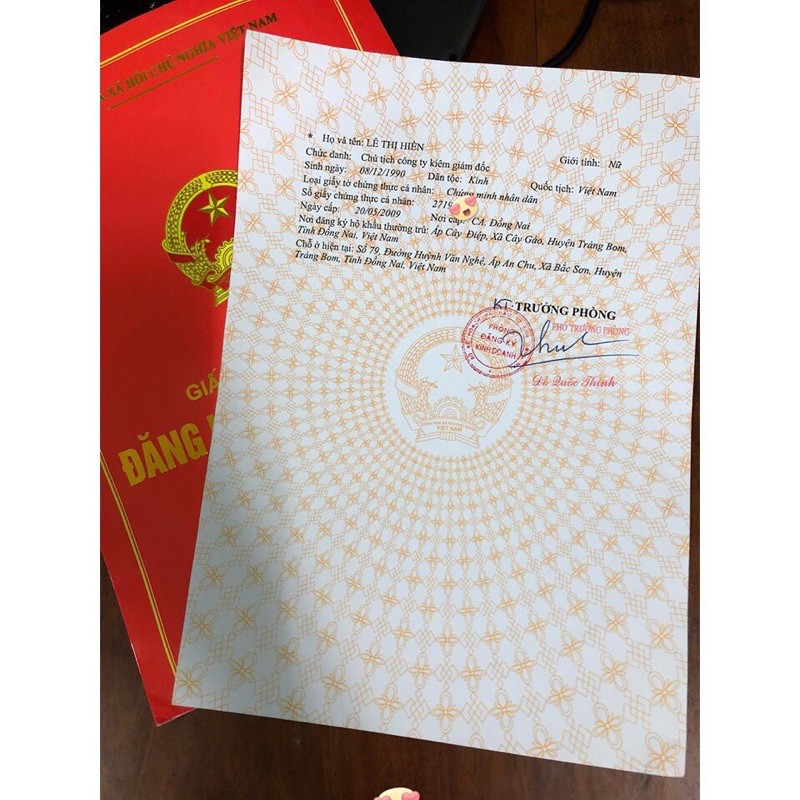 XÃ HỘI CHỦ NGHĨA VIỆT NAM
GIẤ
ĐĂNG
* Họ và tên: LÊ THỊ HIỀN Giới tính: Nữ
Chức danh: Chủ tịch công ty kiêm giám đốc
Sinh ngày: 08/12/1990 Dân tộc: Kinh Quốc tịch: Việt Nam
Loại giấy tờ chứng thực cá nhân: Chứng minh nhân dân
Số giấy chứng thực cá nhân: 2719
Ngày cấp: 20/05/2009 Nơi cấp: CA. Đồng Nai
Nơi đăng ký hộ khẩu thường trú: Ấp Cây Điệp, Xã Cây Gáo, Huyện Trảng Bom,
Tỉnh Đồng Nai, Việt Nam
Chỗ ở hiện tại: Số 79, Đường Huỳnh Văn Nghệ, Ấp An Chu, Xã Bắc Sơn, Huyện
Trảng Bom, Tỉnh Đồng Nai, Việt Nam
KT.TRƯỞNG PHÒNG
PHÓ TRƯỞNG PHÒNG
PHÒNG
ĐĂNG KÝ
KINH DOANH
Đỗ Quốc Thịnh
VIỆT NAM